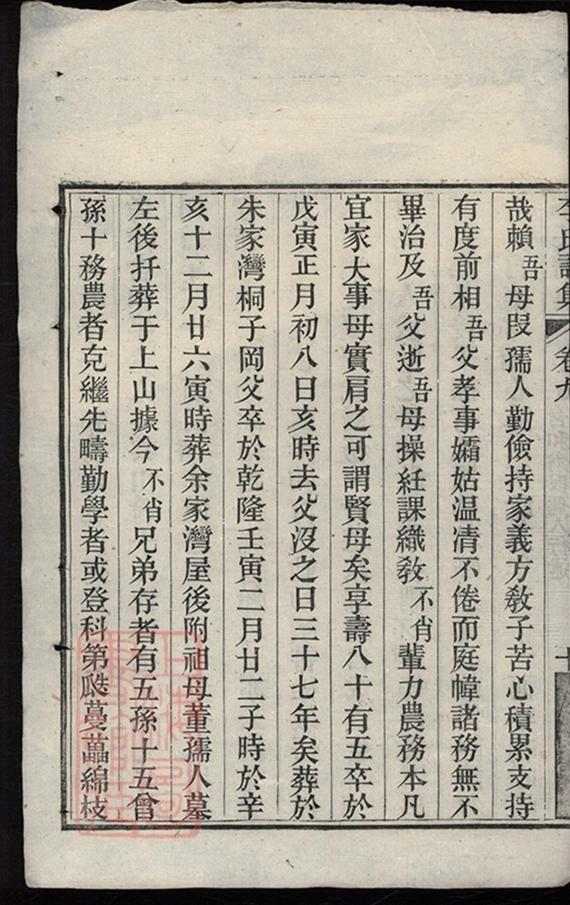 卷九
哉賴吾母段孺人勤儉持家義方敎子苦心積累支持
有度前相吾父孝事孀姑温凊不倦而庭幃諸務無不
畢治及吾父逝吾母操紝課織敎不肖輩力農務本凡
宜家大事母實肩之可謂賢母矣享壽八十有五卒於
戊寅正月初八日亥時去父沒之日三十七年矣葬於
朱家灣桐子岡父卒於乾隆壬寅二月廿二子時於辛
亥十二月廿六寅時葬余家灣屋後附祖母董孺人墓
左後扦葬于上山據今不肖兄弟存者有五孫十五曾
孫十務農者克繼先疇勤學者或登科第瓞蔓藟綿枝